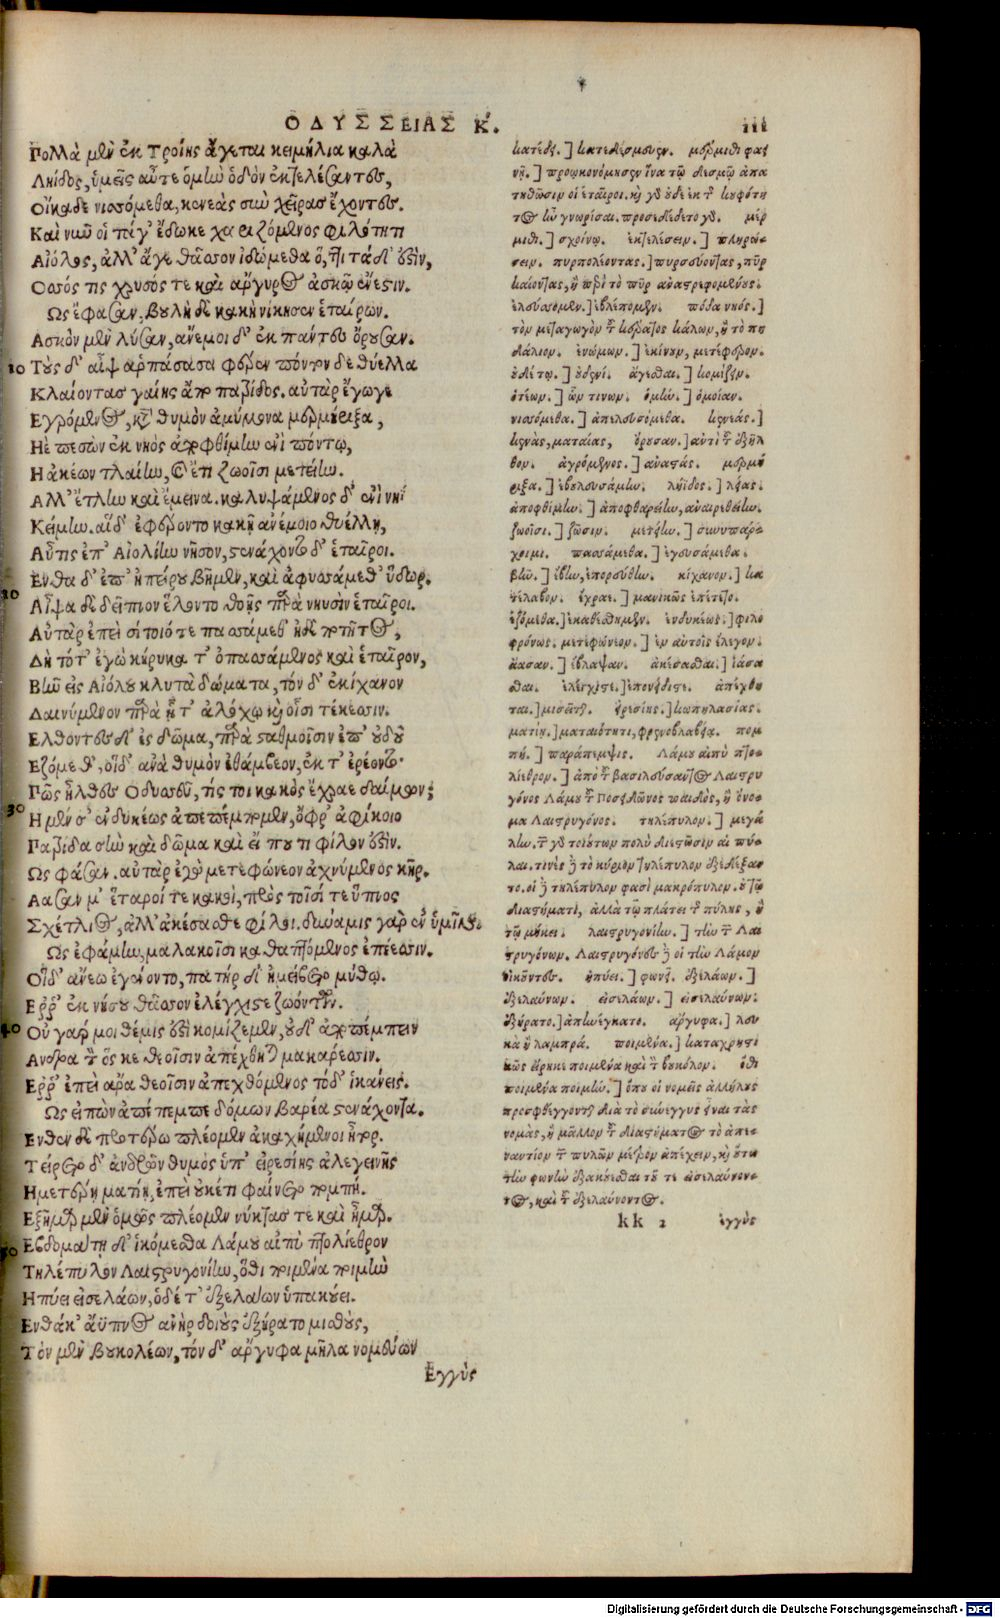 ΟΔΥΣΣΕΙΑΣ Κ. 111
Πολλὰ μὲν ἐκ Τροίης ἄγεται κειμήλια καλὰ
Ληΐδος, ἡμεῖς αὖτε ὁμὴν ὁδὸν ἐκτελέσαντες,
Οἴκαδε νισσόμεθα, κενεὰς σὺν χεῖρας ἔχοντες.
Καὶ νῦν οἱ τά γ' ἔδωκε χαριζόμενος φιλότητι
Αἰόλος, ἀλλ' ἄγε θᾶσσον ἰδώμεθα ὅ, τι τάδ' ἐστὶν,
Ὅσσός τις χρυσός τε καὶ ἄργυρος ἀσκῷ ἔνεστιν.
Ὣς ἔφασαν, βουλὴ δὲ κακὴ νίκησεν ἑταίρων.
Ἀσκὸν μὲν λύσαν, ἄνεμοι δ' ἐκ πάντες ὄρουσαν.
Τοὺς δ' αἶψ' ἁρπάσασα φέρεν πόντον δὲ θύελλα
Κλαίοντας γαίης ἄπο πατρίδος. αὐτὰρ ἔγωγε
Ἐγρόμενος, κατὰ θυμὸν ἀμύμονα μερμήριξα,
Ἠὲ πεσὼν ἐκ νηὸς ἀποφθίμην ἐνὶ πόντῳ,
Ἢ ἀκέων τλαίην, καὶ ἔτι ζωοῖσι μετείην.
Ἀλλ' ἔτλην καὶ ἔμεινα. καλυψάμενος δ' ἐνὶ νηῒ
Κείμην. αἱ δ' ἐφέροντο κακῇ ἀνέμοιο θυέλλῃ,
Αὖτις ἐπ' Αἰολίην νῆσον, στενάχοντο δ' ἑταῖροι.
Ἔνθα δ' ἐπ' ἠπείρου βῆμεν, καὶ ἀφυσσάμεθ' ὕδωρ.
Αἶψα δὲ δεῖπνον ἕλοντο θοῇς παρὰ νηυσὶν ἑταῖροι.
Αὐτὰρ ἐπεὶ σίτοιό τε πασσάμεθ' ἠδὲ ποτῆτος,
Δὴ τότ' ἐγὼ κήρυκα τ' ὀπασσάμενος καὶ ἑταῖρον,
Βῆν εἰς Αἰόλου κλυτὰ δώματα, τὸν δ' ἐκίχανον
Δαινύμενον παρὰ ᾗ τ' ἀλόχῳ καὶ οἷσι τέκεσσιν.
Ἐλθόντες δ' ἐς δῶμα, παρὰ σταθμοῖσιν ἐπ' οὐδοῦ
Ἑζόμεθ', οἱ δ' ἀνὰ θυμὸν ἐθάμβεον, ἔκ τ' ἐρέοντο·
Πῶς ἦλθες Ὀδυσσεῦ, τίς τοι κακὸς ἔχραε δαίμων;
Ἦ μέν σ' ἐνδυκέως ἀπεπέμπομεν, ὄφρ' ἀφίκοιο
Πατρίδα σὴν καὶ δῶμα καὶ εἴ που τι φίλον ἐστίν.
Ὣς φάσαν. αὐτὰρ ἐγὼ μετεφώνεον ἀχνύμενος κῆρ.
Ἄασαν μ' ἕταροί τε κακοὶ, πρὸς τοῖσί τε ὕπνος
Σχέτλιος, ἀλλ' ἀκέσασθε φίλοι. δύναμις γὰρ ἐν ὑμῖν.
Ὣς ἐφάμην, μαλακοῖσι καθαπτόμενος ἐπέεσσιν.
Οἱ δ' ἄνεω ἐγένοντο, πατὴρ δ' ἠμείβετο μύθῳ.
Ἔρρ' ἐκ νήσου θᾶσσον ἐλέγχιστε ζωόντων.
Οὐ γάρ μοι θέμις ἐστὶ κομιζέμεν, οὐδ' ἀποπέμπειν
Ἄνδρα τὸν ὅς κε θεοῖσιν ἀπέχθηται μακάρεσσιν.
Ἔρρ' ἐπεὶ ἄρα θεοῖσιν ἀπεχθόμενος τόδ' ἱκάνεις.
Ὣς εἰπὼν ἀπέπεμπε δόμων βαρέα στενάχοντα.
Ἔνθεν δὲ προτέρω πλέομεν ἀκαχήμενοι ἦτορ.
Τείρετο δ' ἀνδρῶν θυμὸς ὑπ' εἰρεσίης ἀλεγεινῆς
Ἡμετέρῃ ματίῃ, ἐπεὶ οὐκέτι φαίνετο πομπή.
Ἑξῆμαρ μὲν ὁμῶς πλέομεν νύκτας τε καὶ ἦμαρ.
Ἑβδομάτῃ δ' ἱκόμεσθα Λάμου αἰπὺ πτολίεθρον
Τηλέπυλον Λαιστρυγονίην, ὅθι ποιμένα ποιμὴν
Ἠπύει εἰσελάων, ὁ δέ τ' ἐξελάων ὑπακούει.
Ἔνθά κ' ἄϋπνος ἀνὴρ δοιοὺς ἐξήρατο μισθοὺς,
Τὸν μὲν βουκολέων, τὸν δ' ἄργυφα μῆλα νομεύων
Ἐγγὺς
10
20
30
40
50
κατέδει.] κατεδέσμευεν. μέρμιθι φαει
νῇ.] προῳκονόμησεν ἵνα τῷ δεσμῷ ἀπα
τηθῶσιν οἱ ἑταῖροι. καὶ γὰρ οὐδὲ ἐκ τοῦ κουφότη
τος ἦν γνωρίσαι. προσεδέδετο γάρ. μέρ
μιθι.] σχοίνῳ. ἐκτελέσειν.] πληρώ-
σειν. πυρπολέοντας.] πυρσεύοντας, πῦρ
καίοντας, ἢ περὶ τὸ πῦρ ἀναστρεφομένους.
ἐλεύσσομεν.] ἐβλέπομεν. πόδα νηός.]
τὸν μεταγωγὸν τοῦ κέρατος κάλων, ἢ τὸ πη
δάλιον. ἐνώμων.] ἐκίνουν, μετέφερον.
οὐδέ τῳ.] οὐδενί. ἄγεσθαι.] κομίζειν.
ὁτέων.] ὧν τινων. ὁμήν.] ὁμοίαν.
νισσόμεθα.] ἀπελευσόμεθα. κενεάς.]
κενὰς, ματαίας, ὄρουσαν.] ἀντὶ τοῦ ἐξῆλ
θον. ἀγρόμενος.] ἀναστάς. μερμή
ριξα.] ἐβουλευσάμην. ληΐδος.] λείας.
ἀποφθίμην.] ἀποφθαρείην, ἀναιρεθείην.
ζωοῖσι.] ζῶσιν. μετείην.] συνυπάρ-
χοιμι. πασσάμεθα.] ἐγευσάμεθα.
βῆν.] ἔβην, ἐπορεύθην. κίχανον.] κα
τέλαβον. ἔχραε.] μανικῶς ἐπέτεξο.
ἑζόμεθα.] ἐκαθέσθημεν. ἐνδυκέως.] φιλο
φρόνως. μετεφώνεον.] ἐν αὐτοῖς ἔλεγον.
ἄασαν.] ἔβλαψαν. ἀκέσασθαι.] ἰάσα
σθαι. ἐλέγχιστε.] ἐπονείδιστε. ἀπέχθη
ται.] μισεῖται. εἰρεσίης.] κωπηλασίας.
ματίῃ.] ματαιότητι, φρενοβλαβείᾳ. πομ
πή.] παράπεμψις. Λάμου αἰπὺ πτο-
λίεθρον.] ἀπὸ τοῦ βασιλεύσαντος Λαιστρυ
γόνος Λάμου τοῦ Ποσειδῶνος παιδὸς, ἢ ὄνο-
μα Λαιστρυγόνος. τηλέπυλον.] μεγά
λην. τῶν γὰρ τοιούτων πολὺ διεστῶσιν αἱ πύ-
λαι. τινὲς δὲ τὸ κύριον τηλέπυλον ἐξεδέξαν
το. οἱ δὲ τηλέπυλόν φασι μακρόπυλον. οὐ τῷ
διαστήματι, ἀλλὰ τῷ πλάτει τῆς πύλης, ἢ
τῷ μήκει. λαιστρυγονίην.] τὴν τῶν Λαι
στρυγόνων. Λαιστρυγόνες δὲ οἱ τὴν Λάμον
οἰκοῦντες. ἠπύει.] φωνεῖ. ἐξελάων.]
ἐξελαύνων. εἰσελάων.] εἰσελαύνων.
ἐξήρατο.] ἀπηνέγκατο. ἄργυφα.] λευ
κὰ ἢ λαμπρά. ποιμένα.] καταχρηστι
κῶς εἴρηκε ποιμένα καὶ τὸν βουκόλον. ὅθι
ποιμένα ποιμήν.] ὅπου οἱ νομεῖς ἀλλήλους
προσφθέγγονται διὰ τὸ σύνεγγυς εἶναι τὰς
νομὰς, ἢ μᾶλλον τοῦ διαστήματος τὸ ἀπε-
ναντίον τῶν πυλῶν μέρον ἀπέχειν, καὶ οὕτω
τὴν φωνὴν ἐξακούεσθαι τοῦ τε εἰσελαύνον-
τος, καὶ τοῦ ἐξελαύνοντος.
kk 2 ἐγγὺς
Digitalisierung gefördert durch die Deutsche Forschungsgemeinschaft - DFG